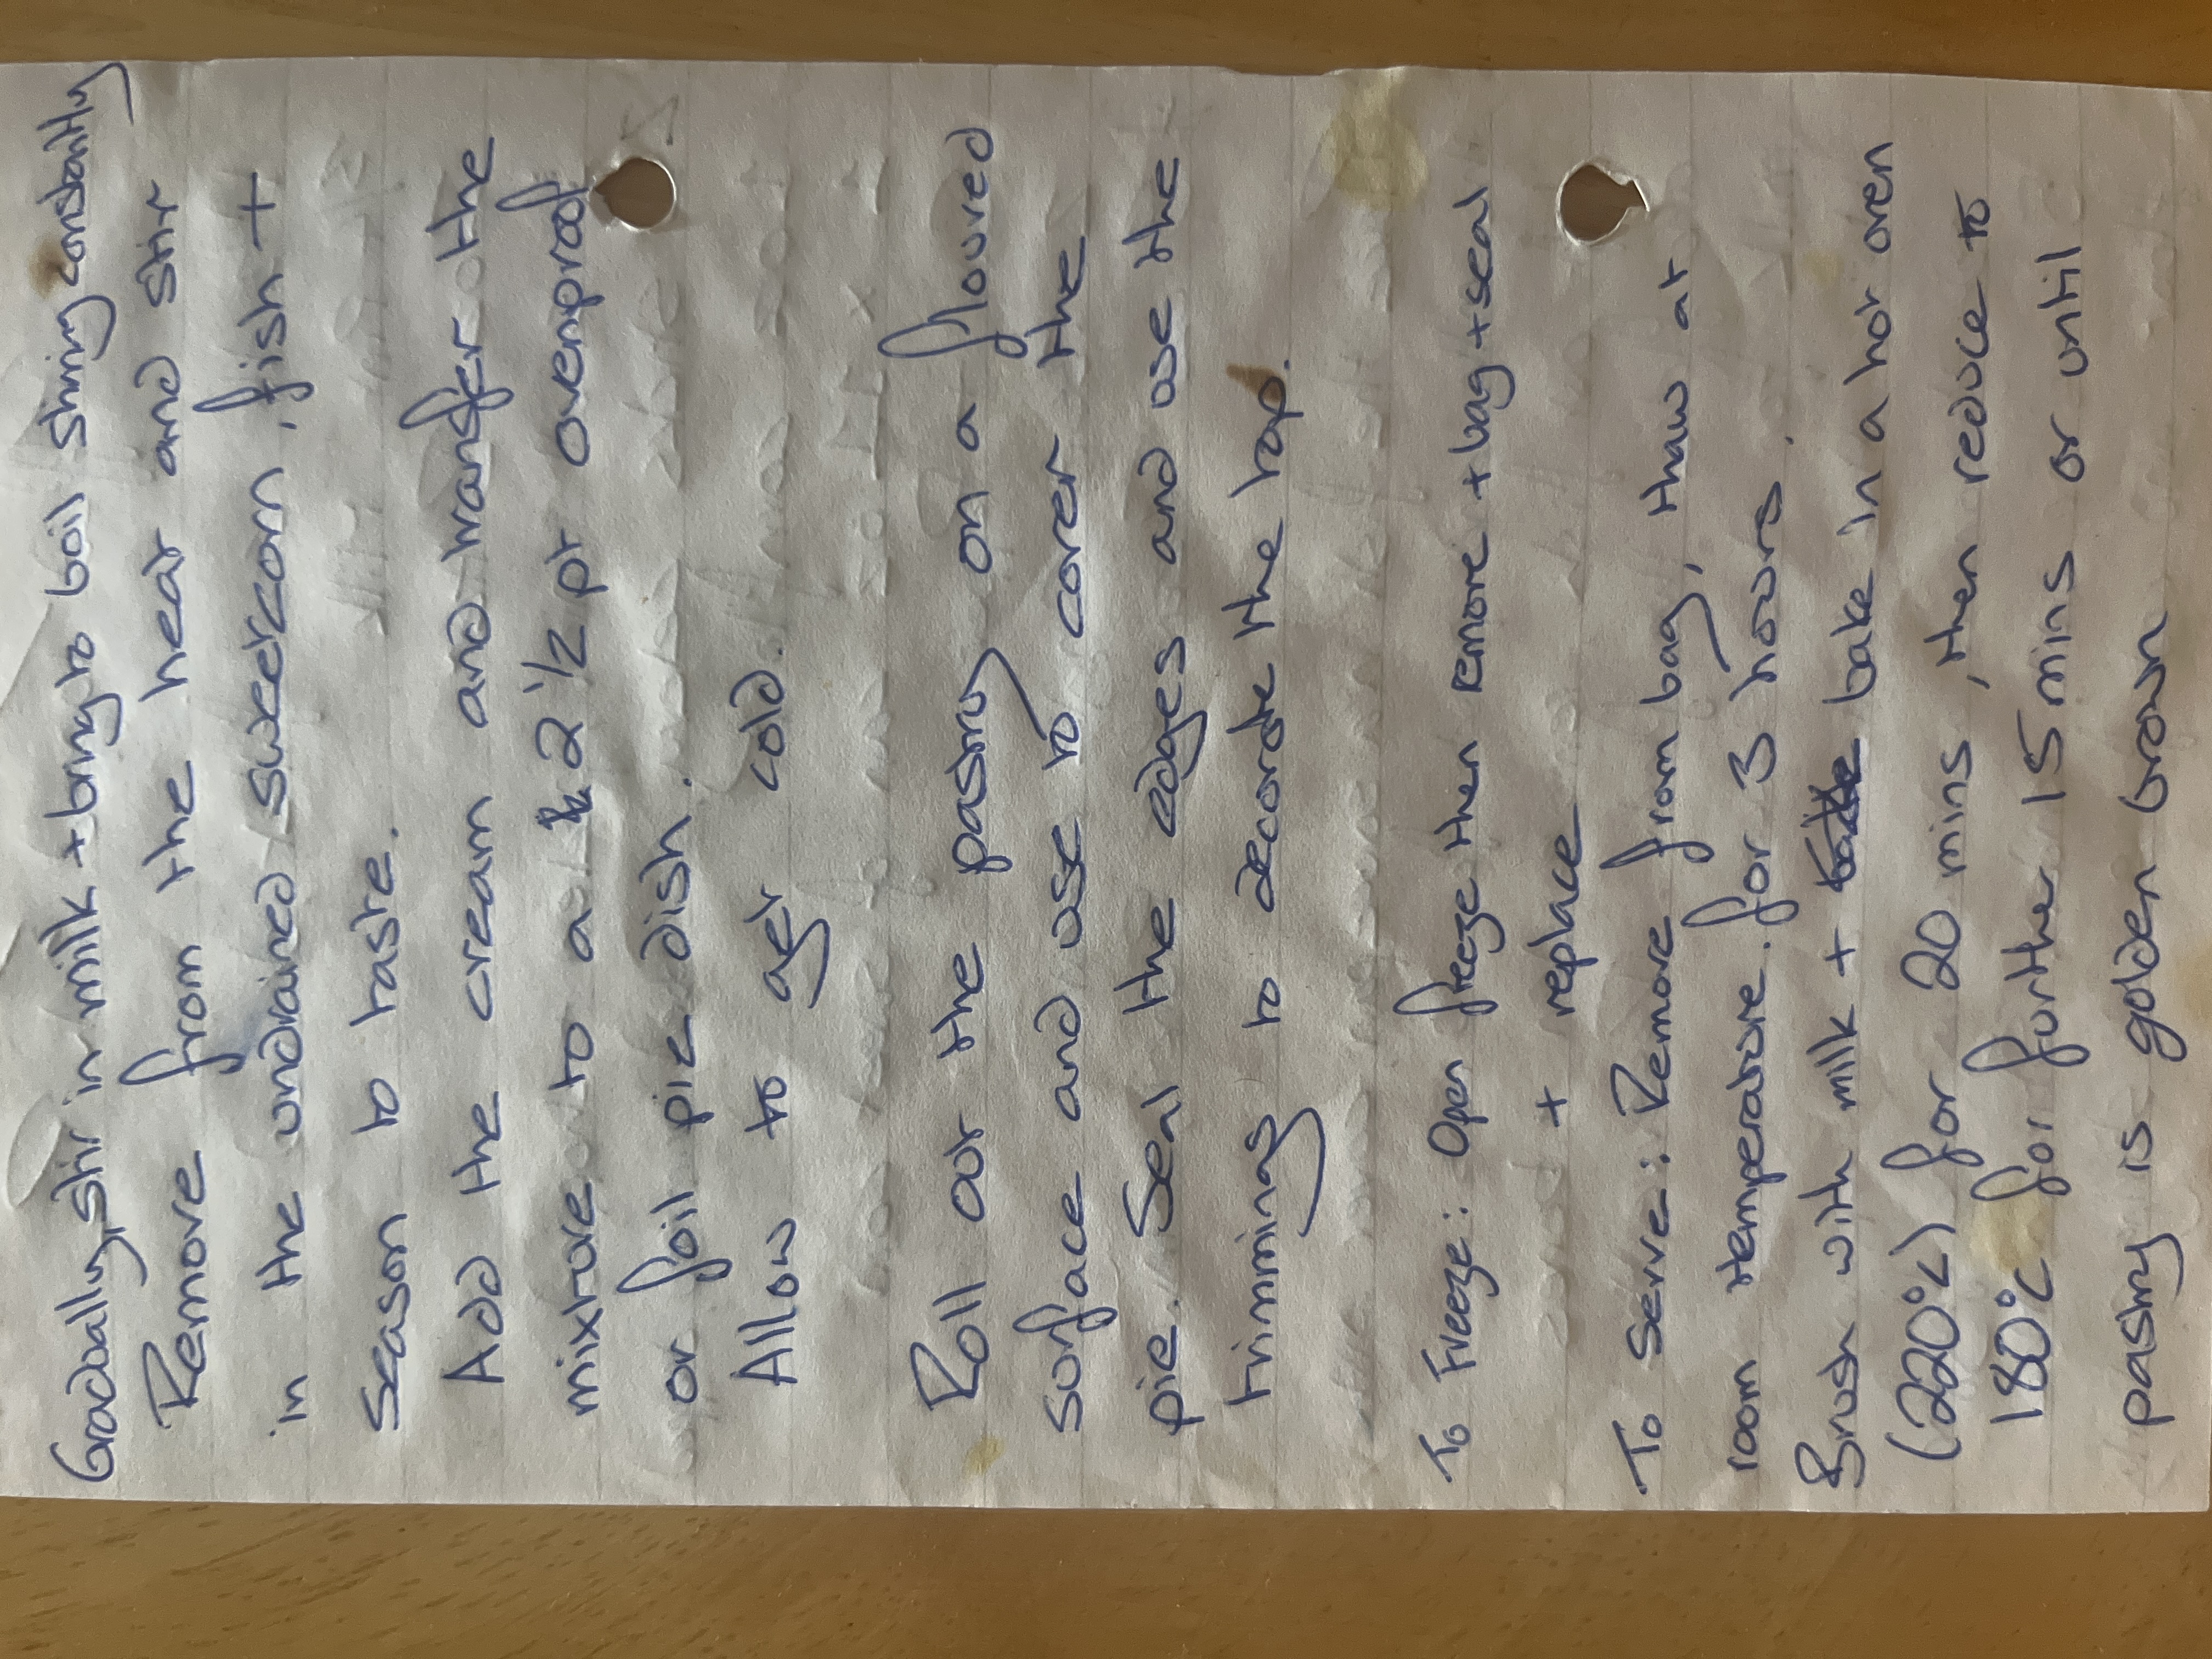 Gradually stir in milk + bring to boil stiring constantly
Remove from the heat and stir
in the undrained sweetcorn, fish +
season to taste.
Add the cream and transfer the
mixture to a 2 1/2 pt ovenproof
or foil pie dish.
Allow to get cold.
Roll out the pastry on a floured
surface and use to cover the
pie. Seal the edges and use the
trimmings to decorate the top.
To Freeze: Open freeze then remove + bag + seal
+ replace
To Serve: Remove from bag, thaw at
room temperature for 3 hours.
Brush with milk + bake in a hot oven
(220°C) for 20 mins, then reduce to
180°C for further 15 mins or until
pastry is golden brown